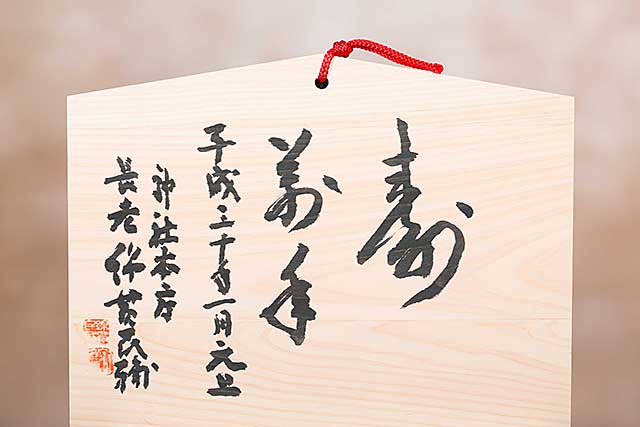 寿
萬年
平成三十年一月元旦
神社本庁
長老